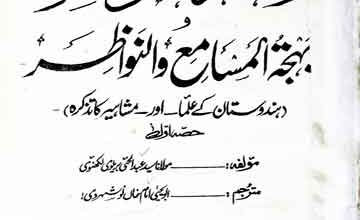 و
بہجۃ المسامع والنواظر
(ہندوستان کے علماء اور مشاہیر کا تذکرہ)
حصہ اول
مؤلفہ: مولانا سید عبدالحئ بریلوی لکھنوی
مترجم: ابویحییٰ امام خاں نوشہروی